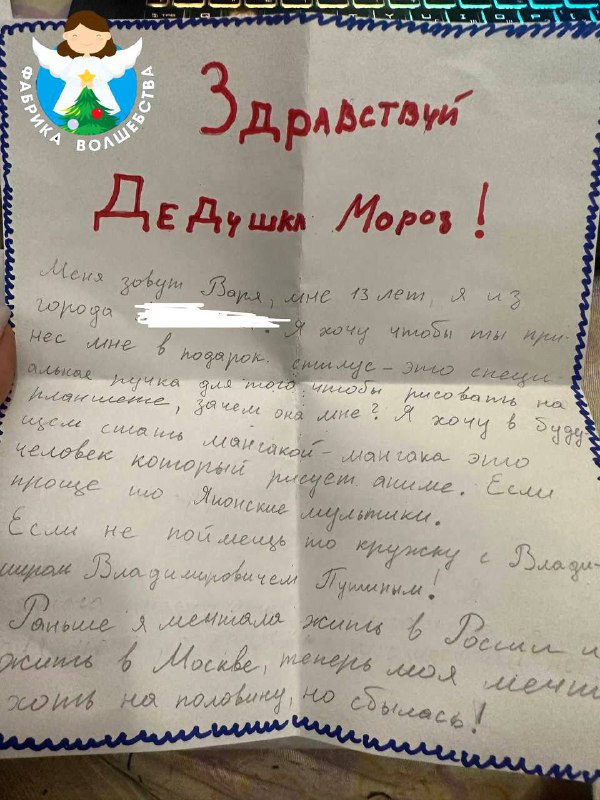 ФАБРИКА ВОЛШЕБСТВА
Здравствуй
Дедушка Мороз!
Меня зовут Варя, мне 13 лет, я из
города . Я хочу чтобы ты при-
нес мне в подарок стилус - это специ
альная ручка для того чтобы рисовать на
планшете, зачем она мне? Я хочу в буду
щем стать мангакой - мангака это
человек который рисует аниме. Если
проще то Японские мультики.
Если не поймещь то кружку с Влади-
миром Владимировичем Путиным!
Раньше я мечтала жить в России и
жить в Москве, теперь моя мечт
хоть на половину, но сбылась!